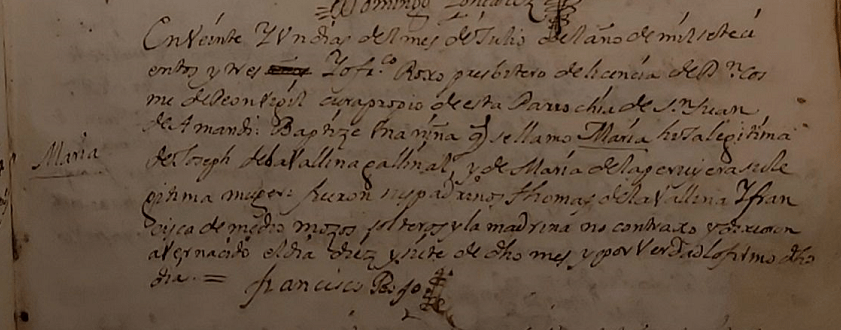 Domingo Gonzalez
En veinte y un dias del mes de Julio del año de mil seteci
entos y tres Yo fr.co Roxo presbitero de licencia de D.n Cos
me de Peon Vigil cura propio de esta Parrochia de S.n Juan
de Amandi: Baptize una niña q se llamo Maria hija legitima
Maria
de Joseph de la Vallina gallinal, y de Maria de la peruyera su le
gitima muger: fueron sus padrinos Thomas de la Vallina Y fran
cisca de medio mozos solteros y la madrina no contraxo y dixeron
aver nacido el dia diez y siete de dho mes y por verdad lo firmo dho
dia. = francisco Roxo